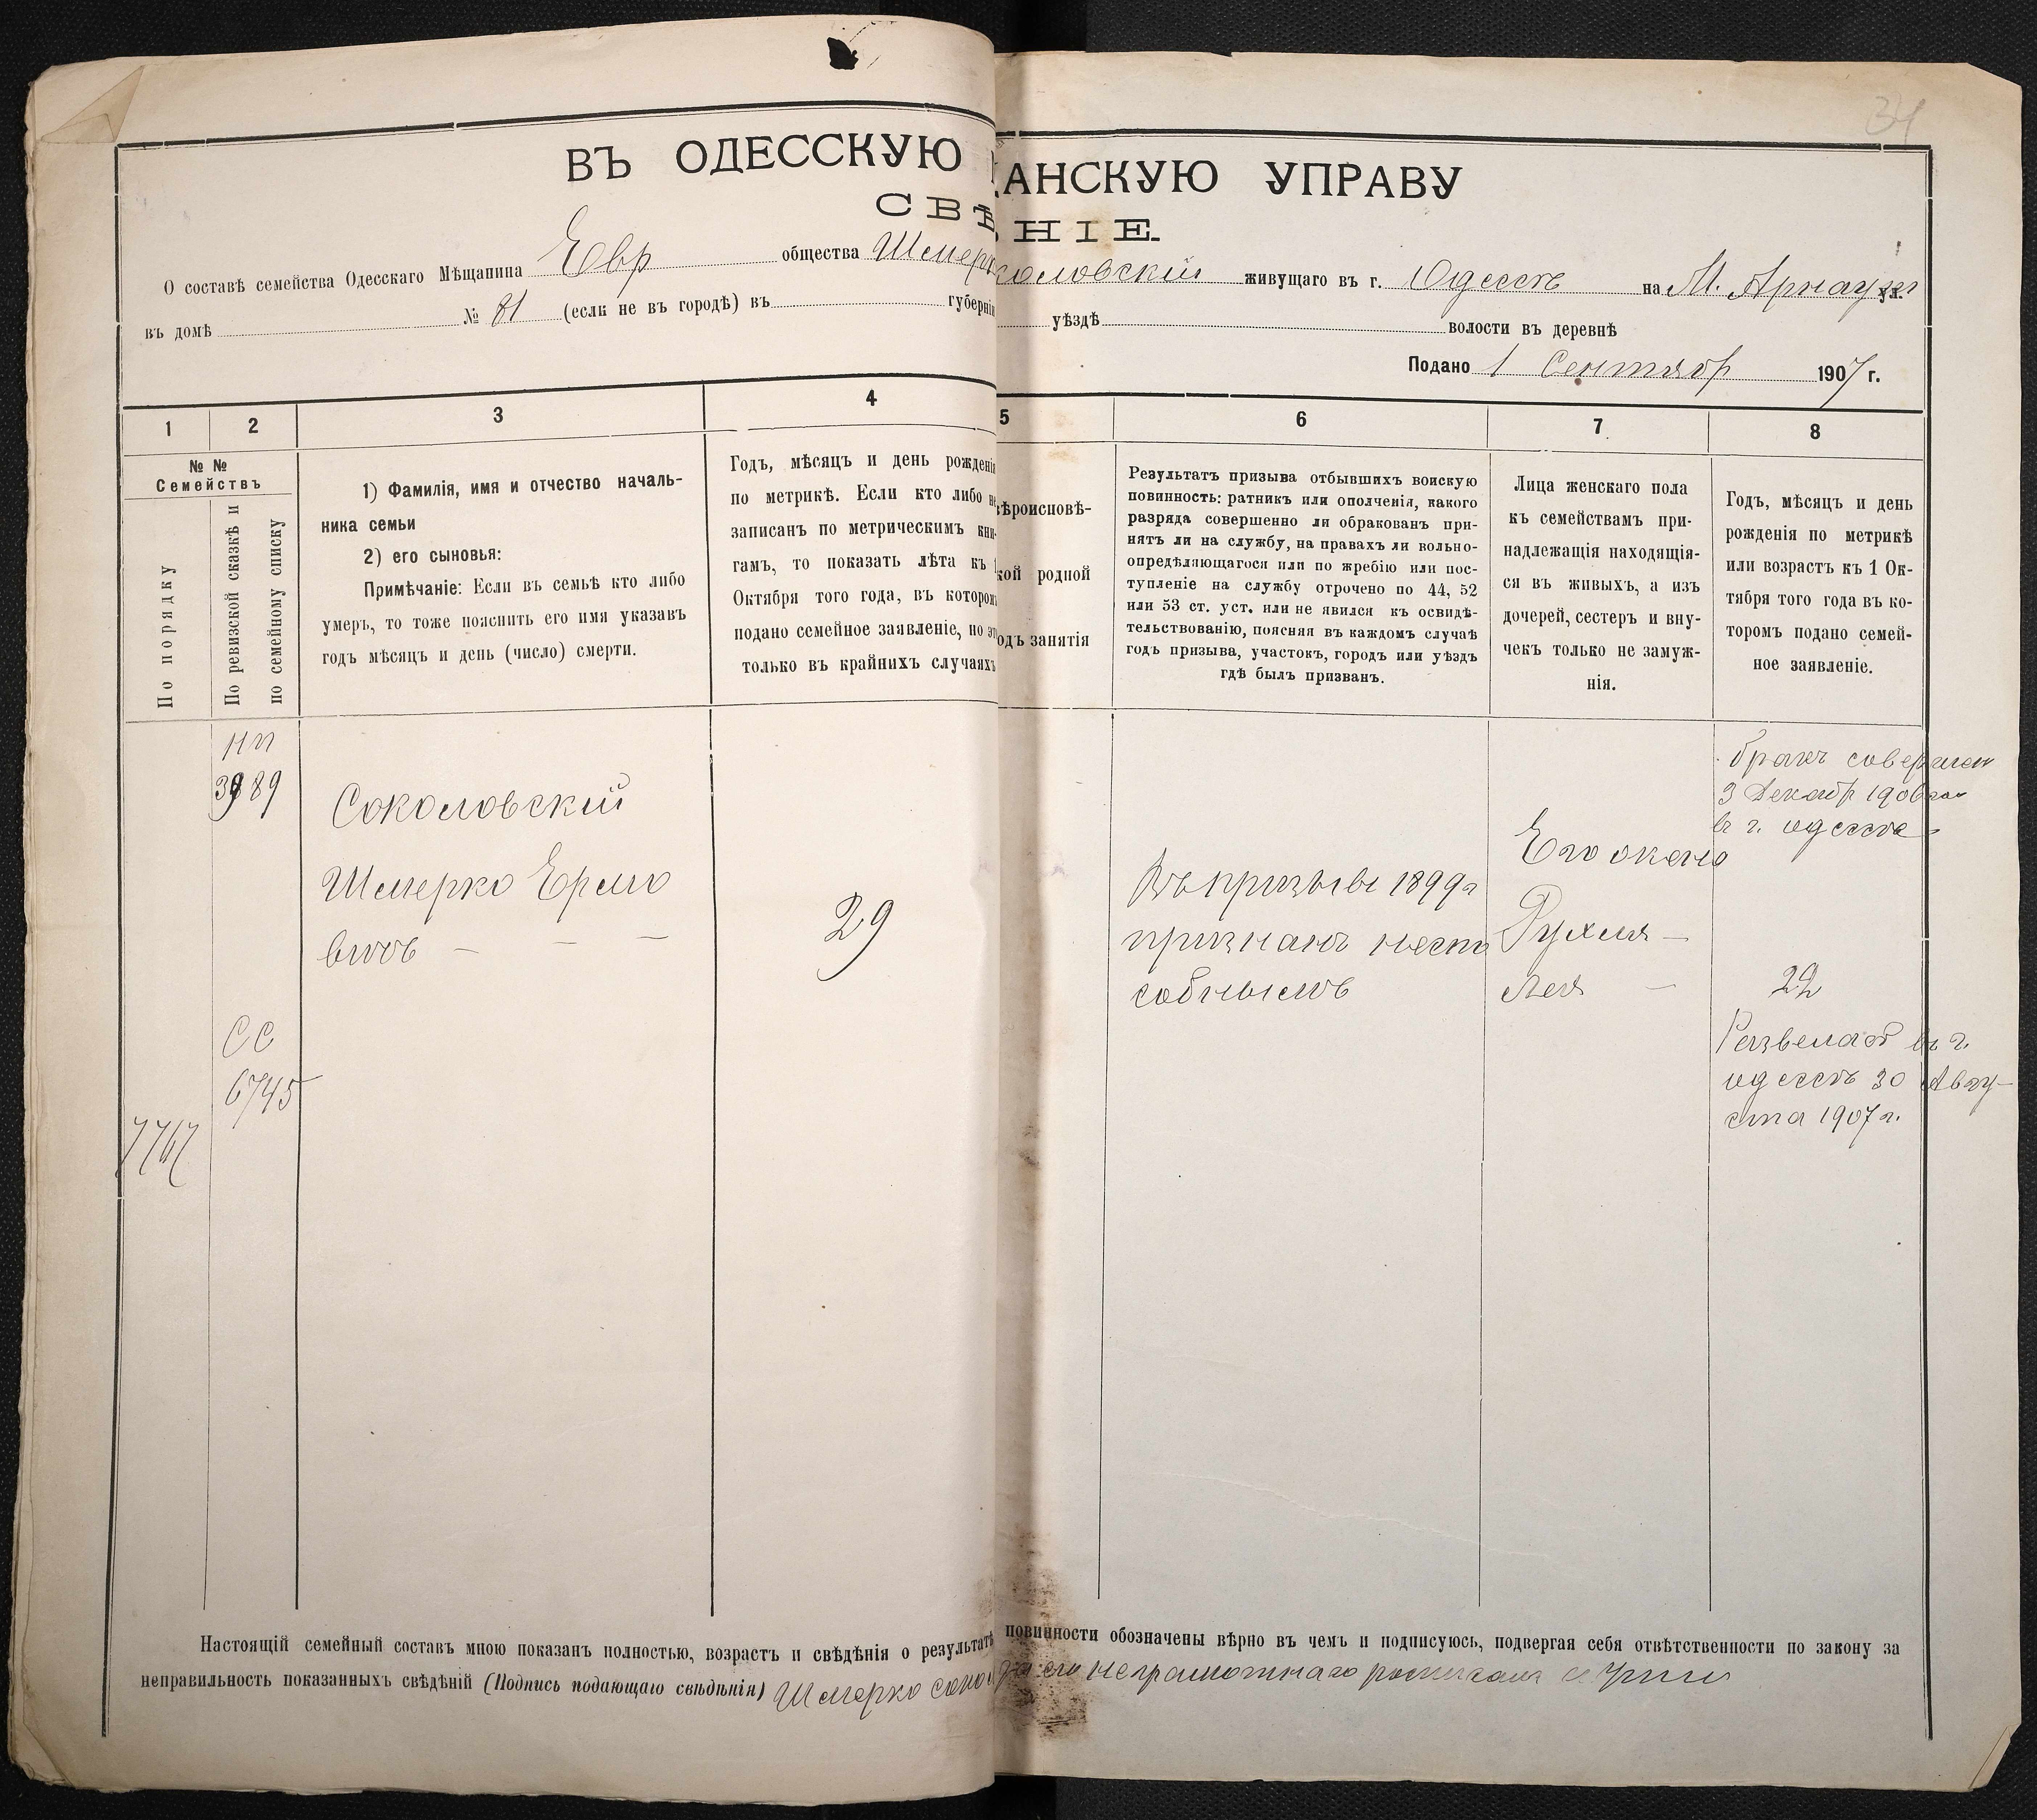 34
ВЪ ОДЕССКУЮ АНСКУЮ УПРАВУ
СВѢ НІЕ.
О составѣ семейства Одесскаго Мѣщанина Евр общества Шмерк коловскій живущаго въ г. Одессѣ на М. Арнаут ул.
въ домѣ № 81 (если не въ городѣ) въ губерніи уѣздѣ волости въ деревнѣ
Подано 1 Сентябр 1907 г.
1 2 3 4 5 6 7 8
№ №
Семействъ
По порядку
По ревизской сказкѣ и
по семейному списку
1) Фамилія, имя и отчество началь-
ника семьи
2) его сыновья:
Примѣчаніе: Если въ семьѣ кто либо
умеръ, то тоже пояснить его имя указавъ
годъ мѣсяцъ и день (число) смерти.
Годъ, мѣсяцъ и день рожденія
по метрикѣ. Если кто либо не
записанъ по метрическимъ кни-
гамъ, то показать лѣта къ 1
Октября того года, въ которомъ
подано семейное заявленіе, но это
только въ крайнихъ случаяхъ
ѣроисповѣ-
кой родной
одъ занятія
Результатъ призыва отбывшихъ воискую
повинность: ратникъ или ополченія, какого
разряда совершенно ли обракованъ при-
нятъ ли на службу, на правахъ ли вольно-
опредѣляющагося или по жребію или пос-
тупленіе на службу отрочено по 44, 52
или 53 ст. уст. или не явился къ освидѣ-
тельствованію, поясняя въ каждомъ случаѣ
годъ призыва, участокъ, городъ или уѣздъ
гдѣ былъ призванъ.
Лица женскаго пола
къ семействамъ при-
надлежащія находящія-
ся въ живыхъ, а изъ
дочерей, сестеръ и вну-
чекъ только не замуж-
нія.
Годъ, мѣсяцъ и день
рожденія по метрикѣ
или возрастъ къ 1 Ок-
тября того года въ ко-
торомъ подано семей-
ное заявленіе.
3989
Соколовскій
Шмерко Ермо
вичъ
29
Въ призывѣ 1899 г
признанъ неспо
собнымъ
Его жена
Рухля
Лея
бракъ совершен
3 Декабр 1906 год
в г. Одессѣ
22
СС
6745
7767
Развелась в г.
Одессѣ 30 Авгу-
ста 1907 г.
Настоящій семейный составъ мною показанъ полностью, возрастъ и свѣдѣнія о результатѣ повинности обозначены вѣрно въ чемъ и подписуюсь, подвергая себя отвѣтственности по закону за
неправильность показанныхъ свѣдѣній (Подпись подающаго свѣдѣнія) Шмерко Соко а его неграмотнаго росписался